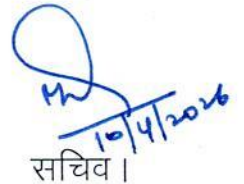 10/4/2026
सचिव।